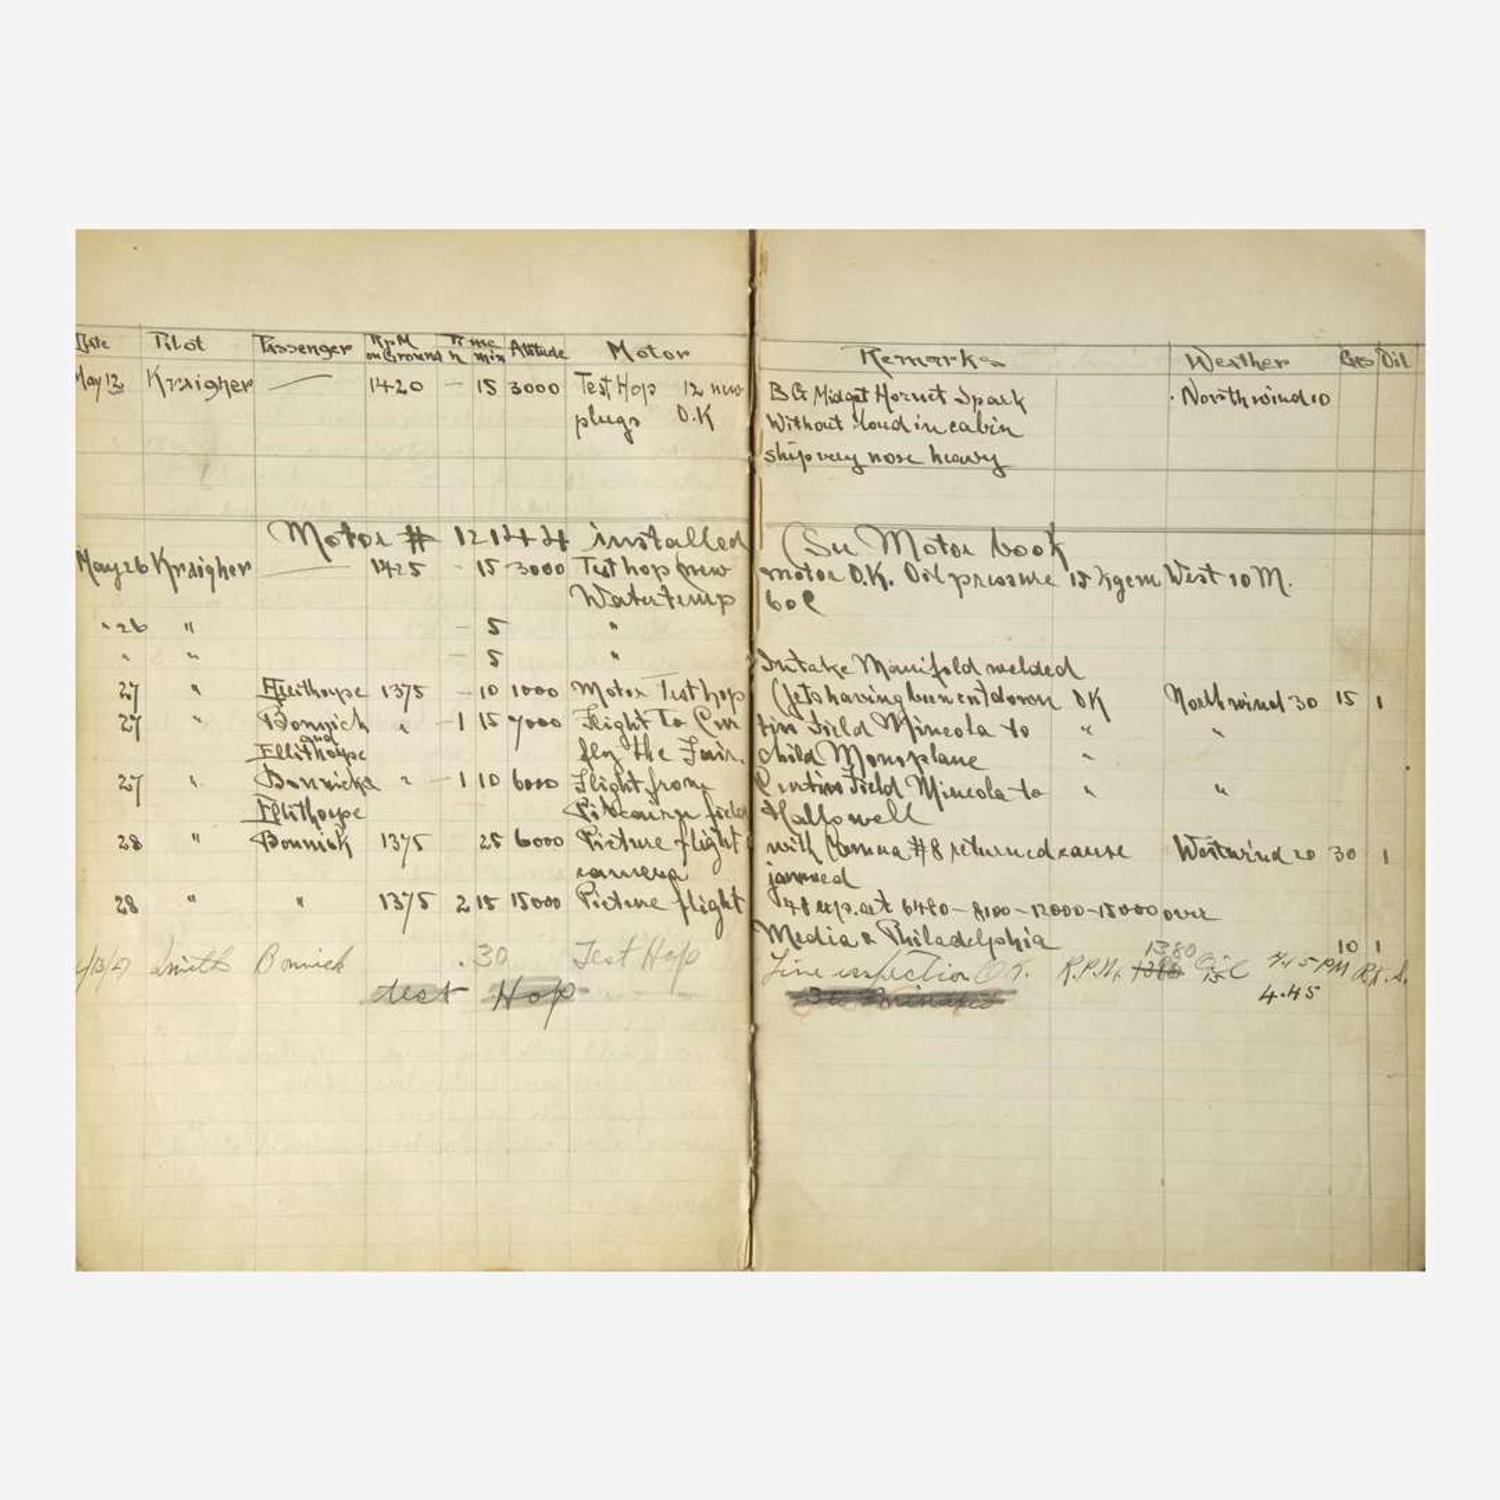 Date Pilot Passenger R.P.M on Ground Time h min Altitude Motor Remarks Weather Gas Oil
May 12 Kraigher — 1420 - 15 3000 Test Hop 12 new B G Midget Hornet Spark Northwind 10
plugs O.K Without load in cabin
ship very nose heavy
Motor # 12144 installed (See Motor book
May 26 Kraigher — 1425 - 15 3000 Test hop new motor O.K. Oil pressure 15 kgcm West 10 M.
Water temp 60
" 26 " - 5 "
" " - 5 " Intake Manifold welded
27 " Ellithorpe 1375 - 10 1000 Motor Test hop (jets having been cut down OK North wind 30 15 1
27 " Bonwick " - 1 15 7000 Flight To Cur tiss Field Mineola to " "
and
Ellithorpe fly the Fair child Monoplane "
27 " Bonwick & " - 1 10 6000 Flight from Curtiss Field Mineola to " "
Ellithorpe Pitcairn field Hallowell
28 " Bonwick 1375 25 6000 Picture flight with #8 returned cause Westwind 20 30 1
camera jammed
28 " " 1375 2 15 15000 Picture flight 48 exp. at 8100 - 12000 - 15000 over
Media & Philadelphia 10 1
1380
/13/27 Smith Bonwick .30 Test Hop Line inspection O.K. R.P.M. Oil 4.45 PM
test Hop 30 Minutes 4.45